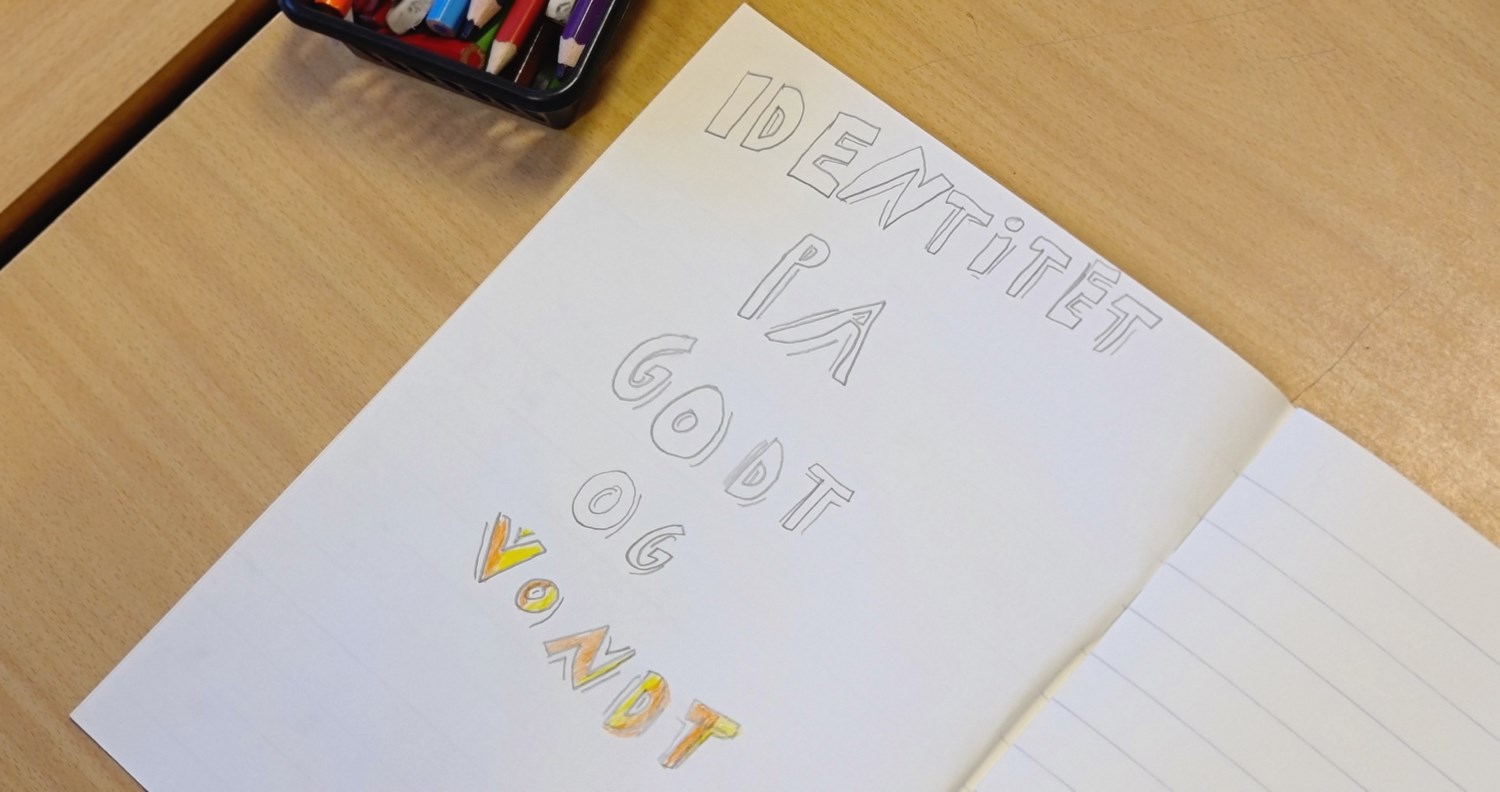 IDENTiTET
PA
GODT
OG
VONDT